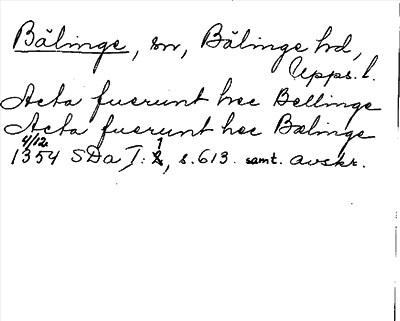 Bälinge, sn, Bälinge hd,
Upps. l.
Acta fuerunt hec Bellinge
Acta fuerunt hec Bælinge
4/12
1354 SDa I: 1, s. 613. samt. avskr.